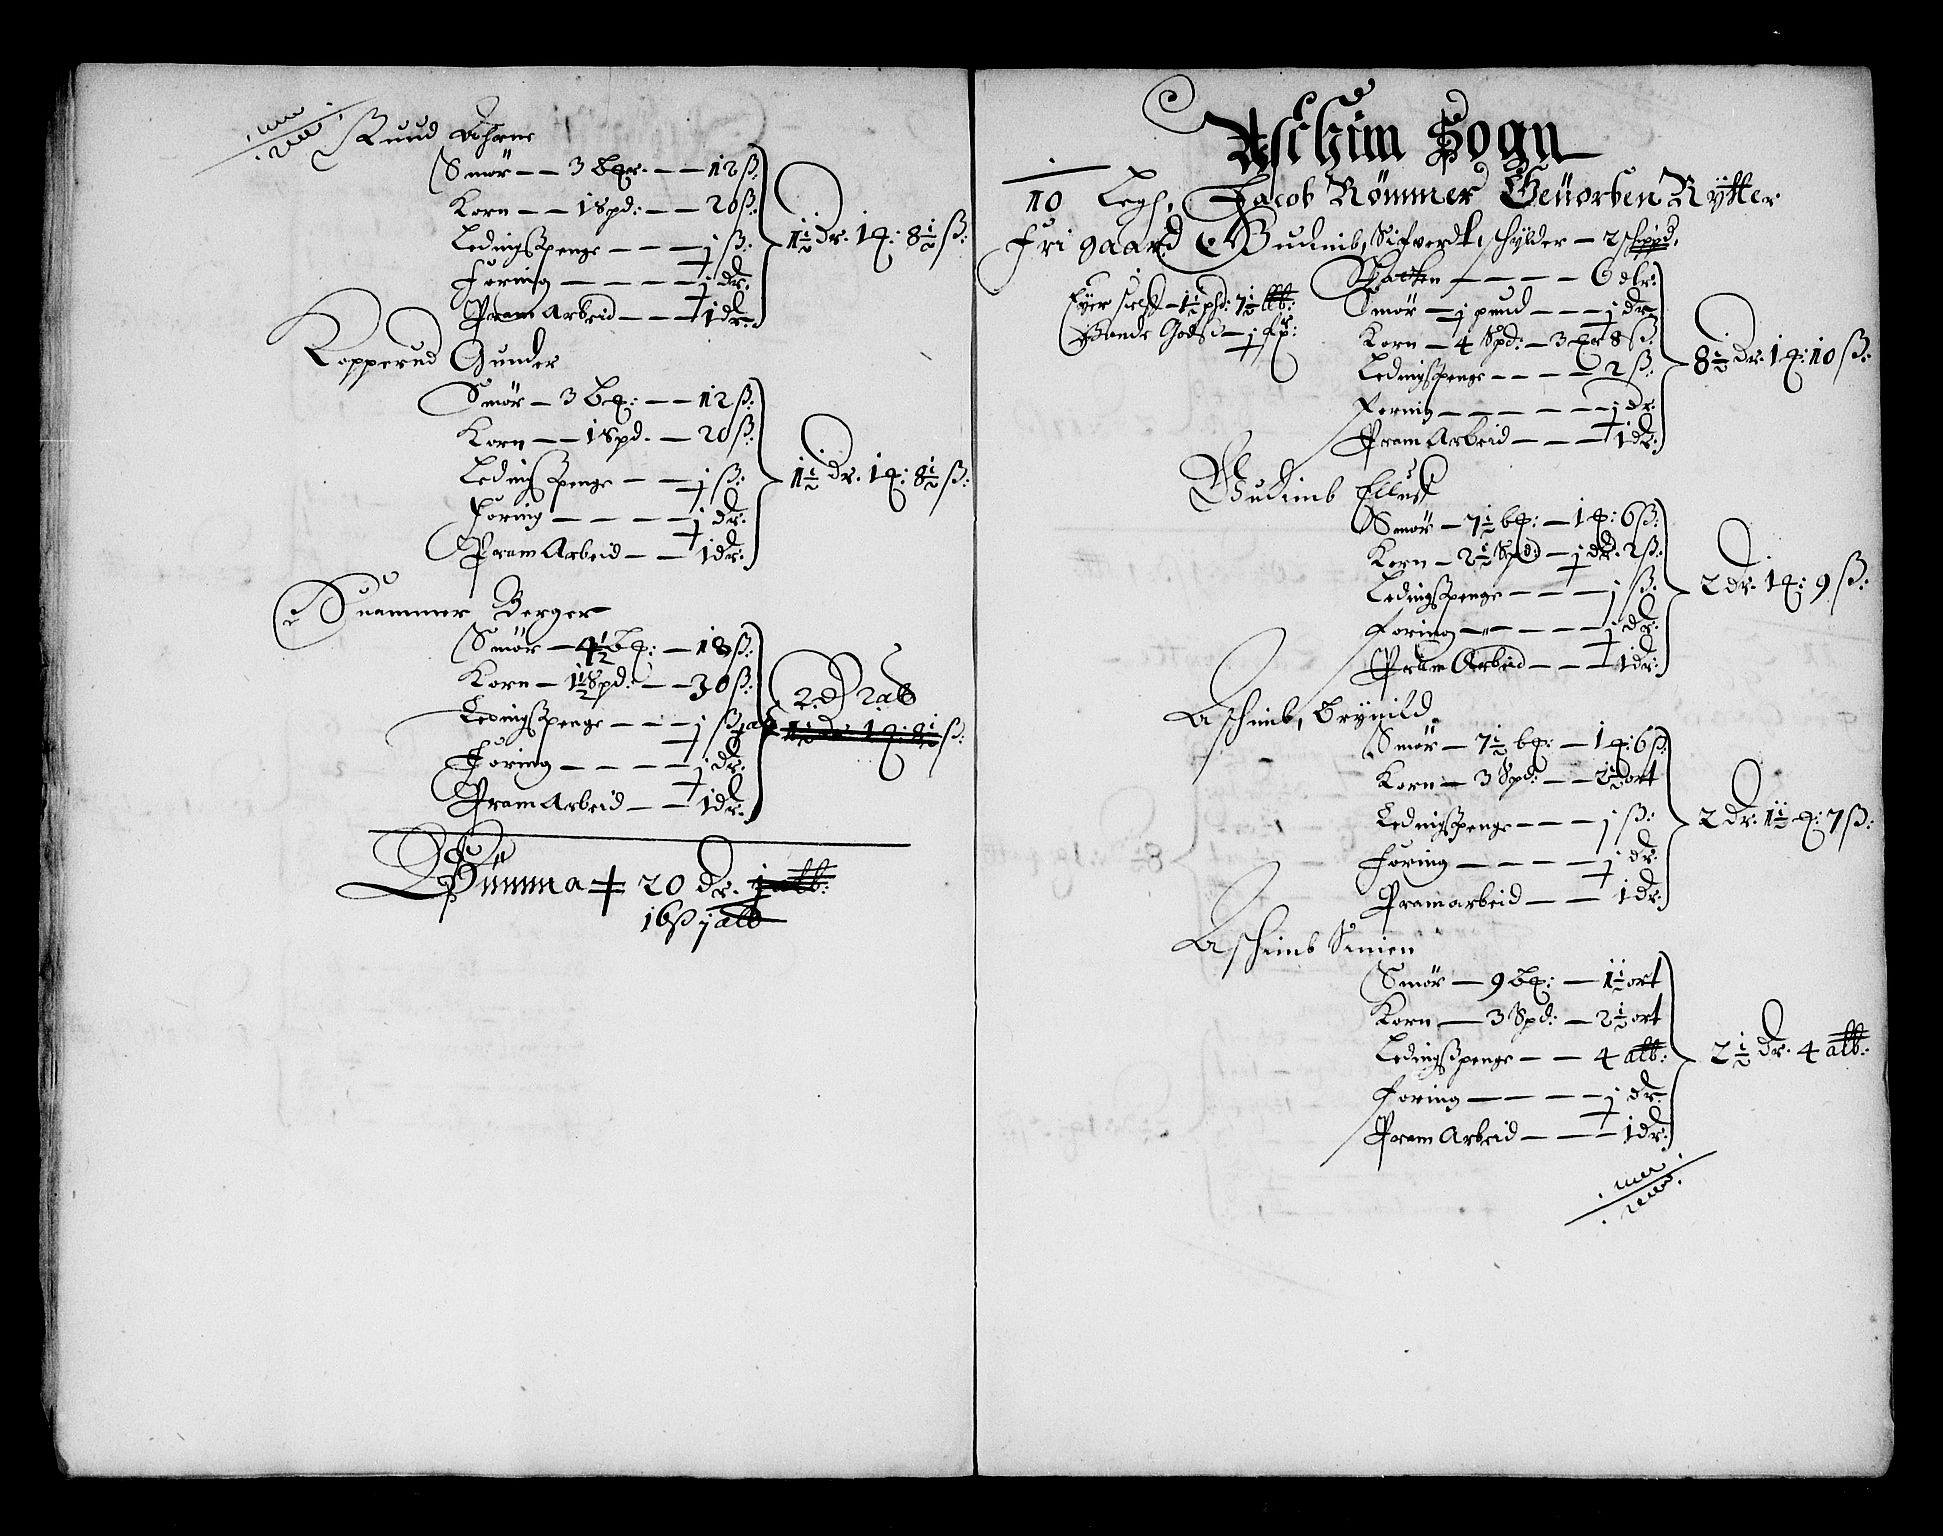 Ruud Ahrne
Smør — 3 bꝑ: — 12 ß:
Korn — 1 Spd: — 20 ß:
Ledingßpenge — j ß:
Foring — j dr:
Pram Arbeid — 1 dr:
1½ dr. 1 q: 8½ ß:
Kopperud Gunder
Smør — 3 bꝑ: — 12 ß:
Korn — 1 Spd. — 20 ß:
Ledingßpenge — j ß:
Foring — j dr:
Pram Arbeid — 1 dr:
1½ dr. 1 q: 8½ ß:
Suammer Berger
Smør — 4½ bꝑ: — 18 ß:
Korn — 1½ Spd: — 30 ß:
Ledingßpenge — j ß
Foring — j dr:
Pram Arbeid — 1 dr:
2 d 2 alb
1½ dr. 1 q: 8½ ß:
Summa 20 dr. j alb:
16 ß j alb
Aschim Sogn
10 Legh, Jacob Rømmer Geuorben Rÿtter
Fri gaard Gudimb, Sifverdt, schÿlder — 2 schippd.
Eÿer sielf — 1½ pfd: 7½ lb:
Bonde Godß — j fꝑ:
— 6 dlr:
Smør — j pund — j dr
Korn — 4 Spd: — 3 q 8 ß:
Ledingßpenge — 2 ß:
Foring — j dr.
Pram Arbeid — 1 dr:
8½ dr: 1 q: 10 ß:
Gudimb Elluf
Smør — 7½ bꝑ: — 1 q: 6 ß:
Korn — 2½ Spd: — j dr. 2 ß:
Ledingßpenge — j ß:
Foring — j dr:
Pram Arbeid — 1 dr:
2 dr. 1 q: 9 ß:
Aschimb, Brÿnild
Smør — 7½ bꝑ: — 1 q: 6 ß:
Korn — 3 Spd: — 2½ ort
Ledingßpenge — j ß:
Foring — j dr.
Pram arbeid — 1 dr:
2 dr. 1½ q: 7 ß:
Aschimb Simen
Smør — 9 bꝑ: — 1½ ort
Korn — 3 Spd: — 2½ ort
Ledingßpenge — 4 alb:
Foring — j dr
Pram Arbeid — 1 dr:
2½ dr. 4 alb: